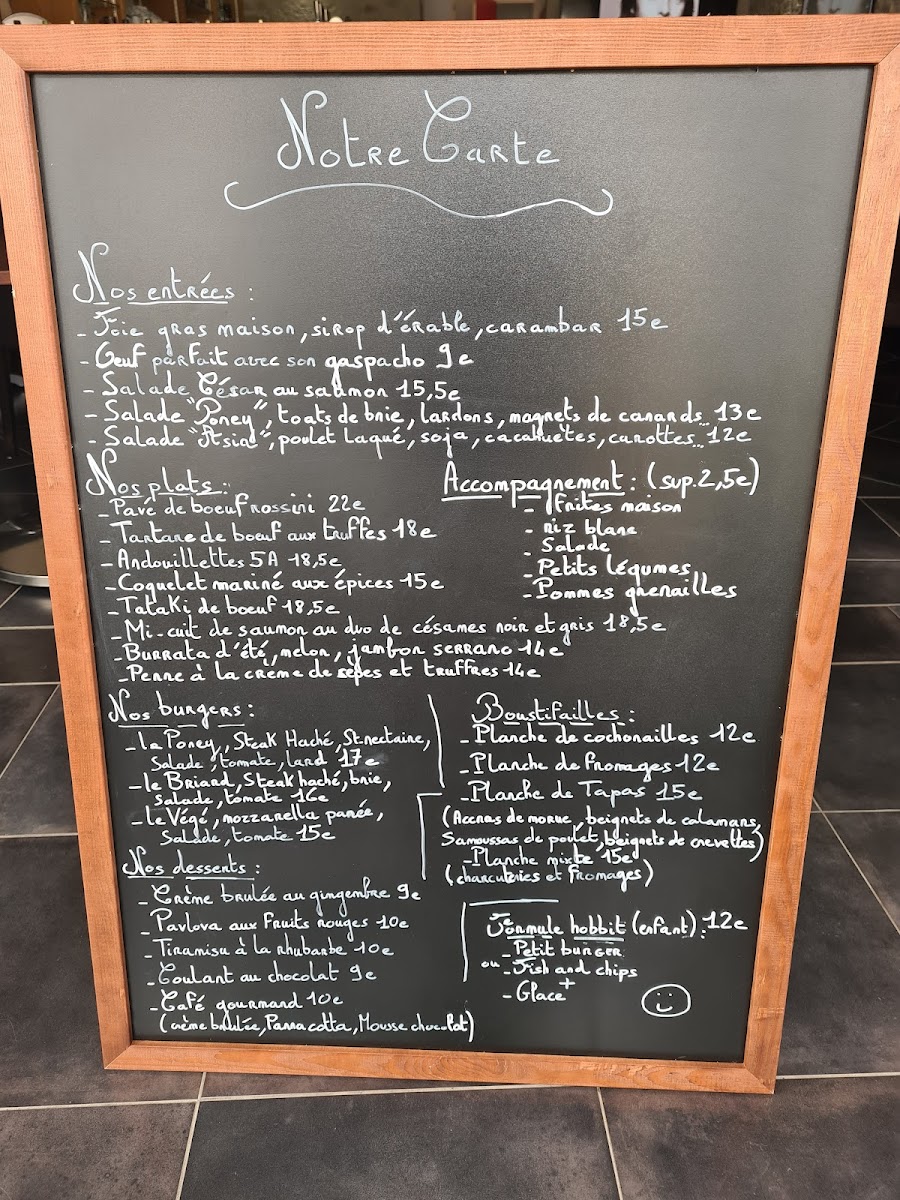 Notre Carte
Nos entrées :
- Foie gras maison, sirop d'érable, carambar 15e
- Oeuf parfait avec son gaspacho 9e
- Salade César au saumon 15,5e
- Salade "Poney", toats de brie, lardons, magrets de canards... 13e
- Salade "Asiat", poulet laqué, soja, cacahuètes, carottes... 12e
Nos plats :
- Pavé de boeuf rossini 22e
- Tartare de boeuf aux truffes 18e
- Andouillettes 5A 18,5e
- Coquelet mariné aux épices 15e
- Tataki de boeuf 18,5e
- Mi-cuit de saumon au duo de césames noir et gris 18,5e
- Burrata d'été, melon, jambon serrano 14e
- Penne à la crème de sèpes et truffres 14e
Accompagnement : (sup. 2,5e)
- frites maison
- riz blanc
- Salade
- Petits légumes
- Pommes grenailles
Nos burgers :
- la Poney, Steak Haché, St nectaire,
Salade, tomate, lard 17e
- le Briand, Steak haché, brie,
salade, tomate 16e
- le Végé, mozzarella panée,
Salade, tomate 15e
Boustifailles :
- Planche de cochonailles 12e
- Planche de fromages 12e
- Planche de Tapas 15e
(Accras de morue, beignets de calamars,
Samoussas de poulet, beignets de crevettes)
- Planche mixte 15e
(charcuteries et fromages)
Nos desserts :
- Crème brulée au gingembre 9e
- Pavlova aux fruits rouges 10e
- Tiramisu à la rhubarbe 10e
- Coulant au chocolat 9e
- Café gourmand 10e
(crème brulée, Panna cotta, Mousse chocolat)
Formule hobbit (enfant) : 12e
- Petit burger
ou - Fish and chips
+
- Glace